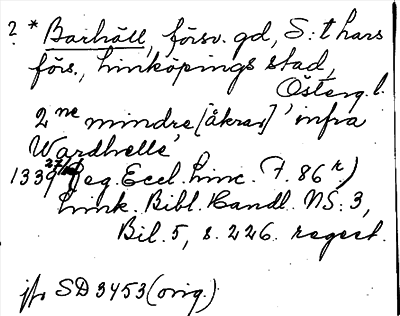 ? * Barhäll, försv. gd, S:t Lars
förs., Linköpings stad,
Österg. l.
2 ne mindre [åkrar] 'infra
Wardhelle'
1339 27/10 (Reg. Eccl. Linc. F. 86 r)
Link. Bibl. Handl. NS. 3,
Bil. 5, s. 226. regest.
jfr SD 3453 (orig.)